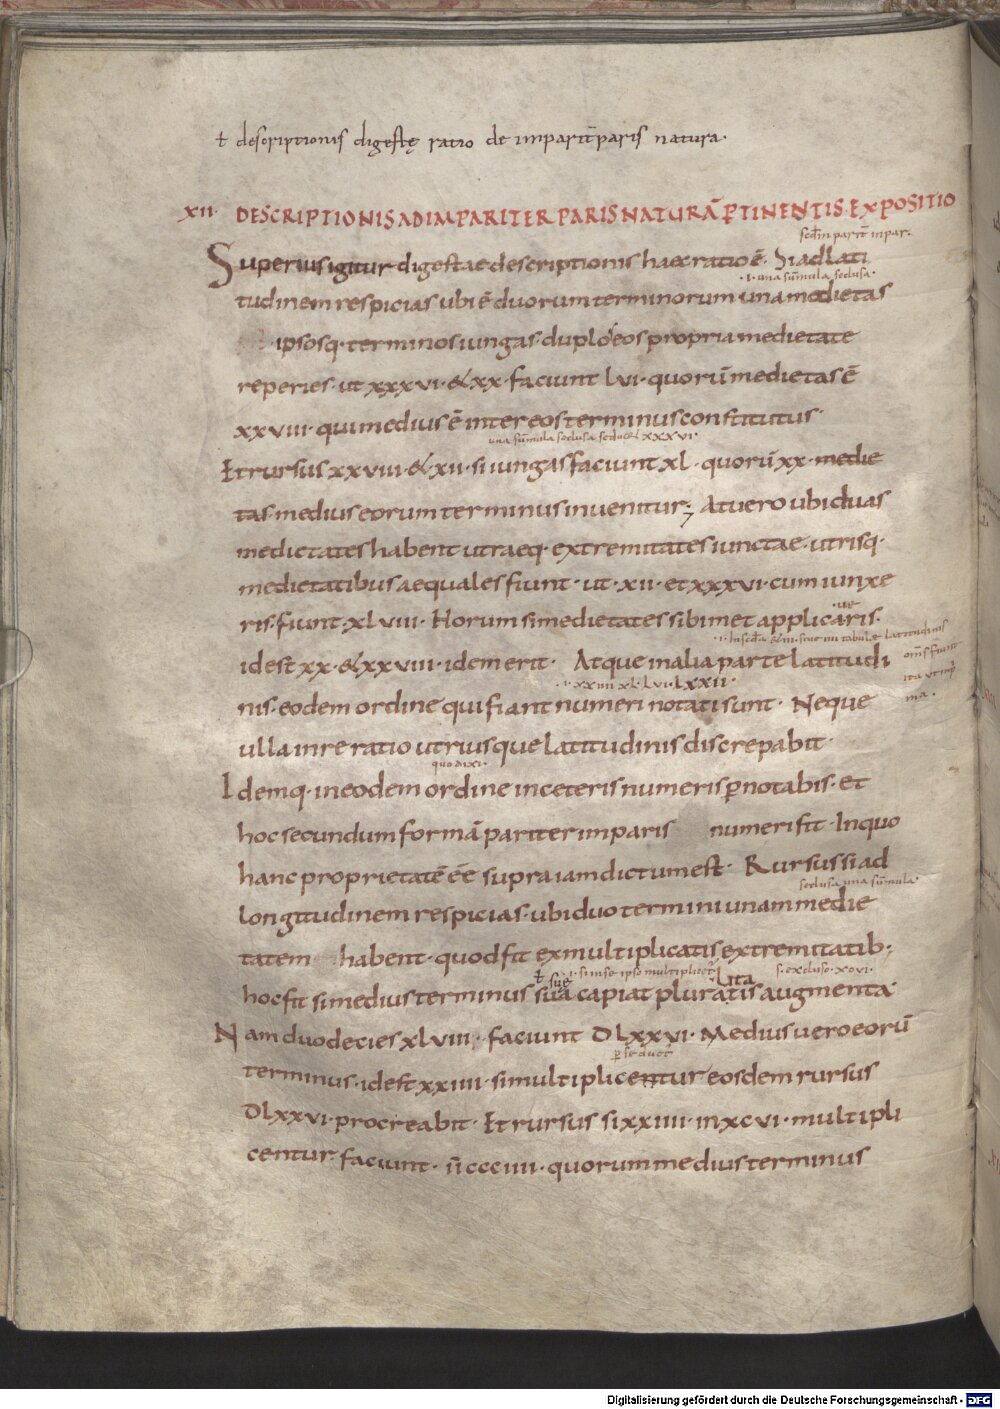 ł descriptionis digestę ratio de imparit̄ paris natura·
XII· DESCRIPTIONIS AD IMPARITER PARIS NATURĀ P̱TINENTIS EXPOSITIO
Superius igitur digestae descriptionis haec ratio ē· Si ad lati
·i· una sūmula seclusa·
tudinem respicias ubi ē duorum terminorum una medietas
ipsosq· terminos iungas· duplos eos propria medietate
reperies· ut xxxvi· & xx· faciunt lvi· quorū medietas ē
xxviii· qui medius ē inter eos terminus constitutus·
una sūmula seclusa
xxxvi·
Et rursus xxviii· & xii· si iungas faciunt xl· quorū xx· medie
tas· medius eorum terminus inuenitur; At uero ubi duas
medietates habent utraeq· extremitates iunctae· utrisq·
medietatibus aequales fiunt· ut· xii· et xxxvi· cum iunxe
ris· fiunt· xlviii· Horum si medietates sibimet applicaris·
idest xx· & xxviii· idem erit· Atque in alia parte latitudi
·i· xxiiii xl· lvi· lxxii·
nis· eodem ordine qui fiant numeri notati sunt· Neque
ulla in re ratio utriusque latitudinis discrepabit·
quo dixi·
Idemq· in eodem ordine in ceteris numeris p̱notabis· et
hoc secundum formā pariter imparis numeri fit· In quo
hanc proprietatē ēē supra iam dictum est· Rursus si ad
seclusa una sūmula·
longitudinem respicias· ubi duo termini unam medie
tatem habent· quod fit ex multiplicatis extremitatib;
ł suę ·i· si in se ipso multiplicet̄ ita s· excluso· xcvi·
hoc fit si medius terminus sua capiat pluratis augmenta·
Nam duodecies xlviii· faciunt DLxxvi· Medius uero eorū
terminus· idest xxiiii· si multiplicentur eosdem rursus
DLxxvi· procreabit· Et rursus si xxiiii· in xcvi· multipli
centur· faciunt· īī ccciiii· quorum medius terminus
Digitalisierung gefördert durch die Deutsche Forschungsgemeinschaft - DFG